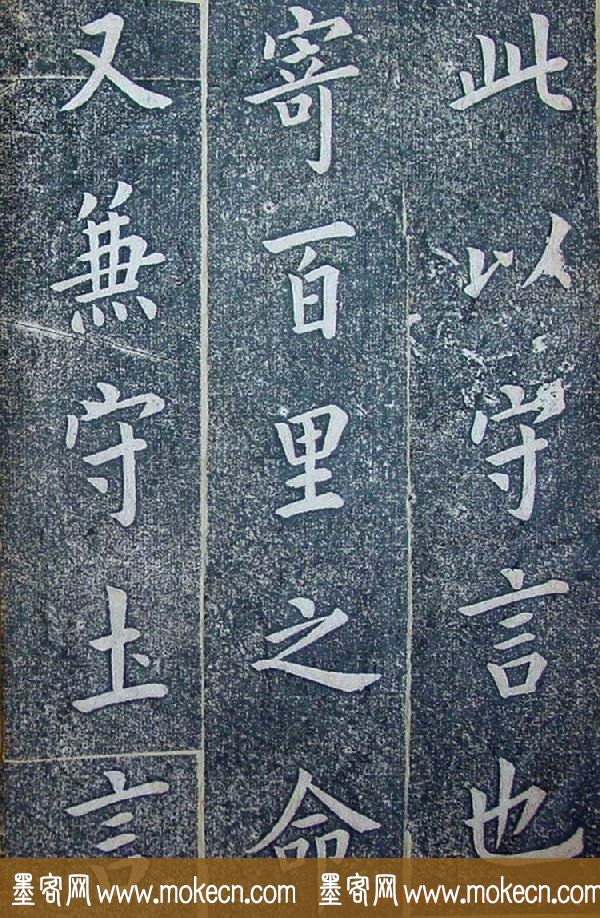 此以守言也
寄百里之命
又兼守土言
墨客网 www.mokecn.com 墨客网 www.mokecn.com